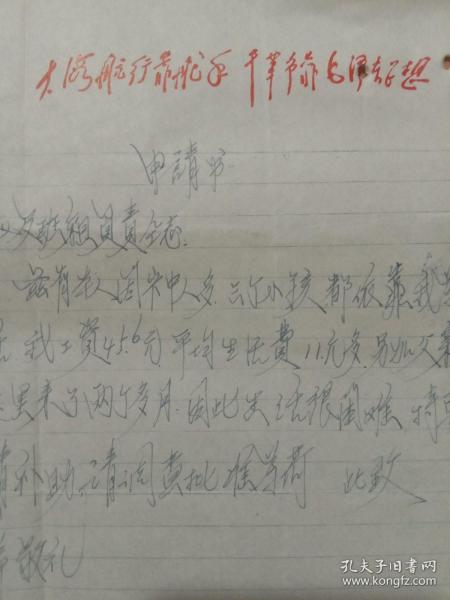 大海航行靠舵手 干革命靠毛泽东思想
申請书
文 組負责仝志.
兹有本人因家中人多.三个小孩都依靠我
我工资45.6元.平均生活费11元多.另加父
里来了两个多月.因此生活很困难 特
請补助.请调查批准为荷 此致
敬礼
孔夫子旧书网
www.kongfz.com